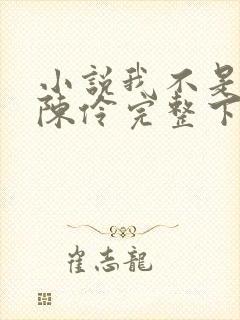 小説我不是
陳伶完整下
崔志龍